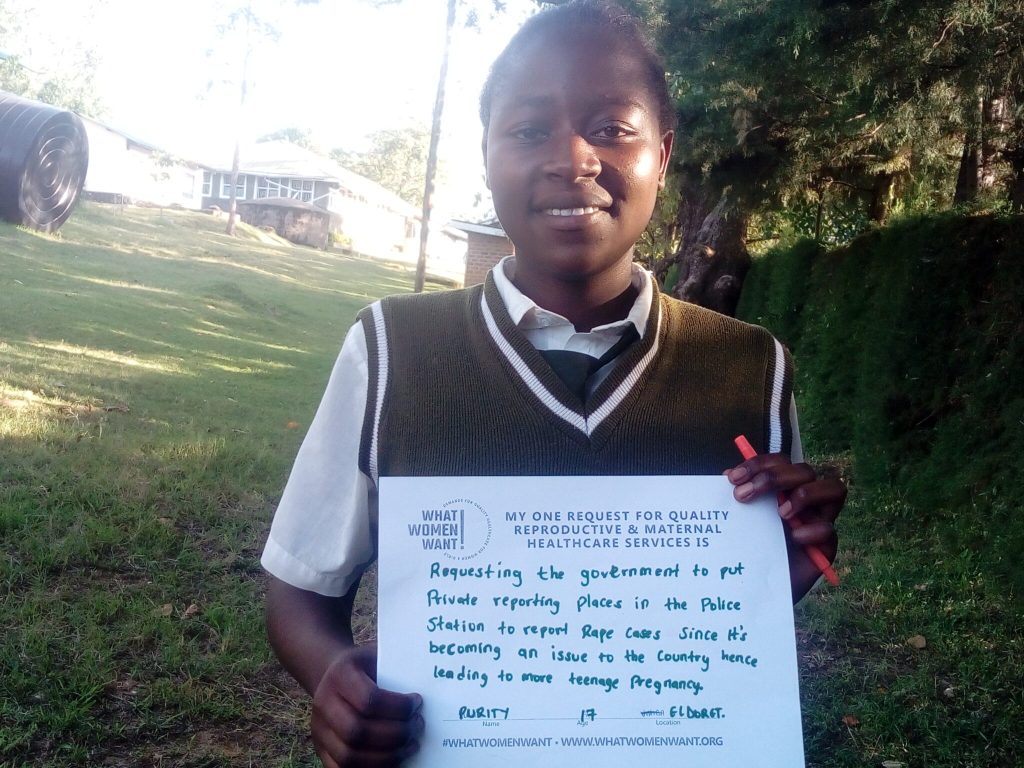 WHAT
WOMEN
WANT!
DEMANDS FOR QUALITY HEALTHCARE FOR WOMEN & GIRLS
MY ONE REQUEST FOR QUALITY
REPRODUCTIVE & MATERNAL
HEALTHCARE SERVICES IS
Requesting the government to put
Private reporting places in the Police
Station to report Rape cases since it's
becoming an issue to the country hence
leading to more teenage Pregnancy.
PURITY 17 ELDORET.
Name Age Location
#WHATWOMENWANT • WWW.WHATWOMENWANT.ORG